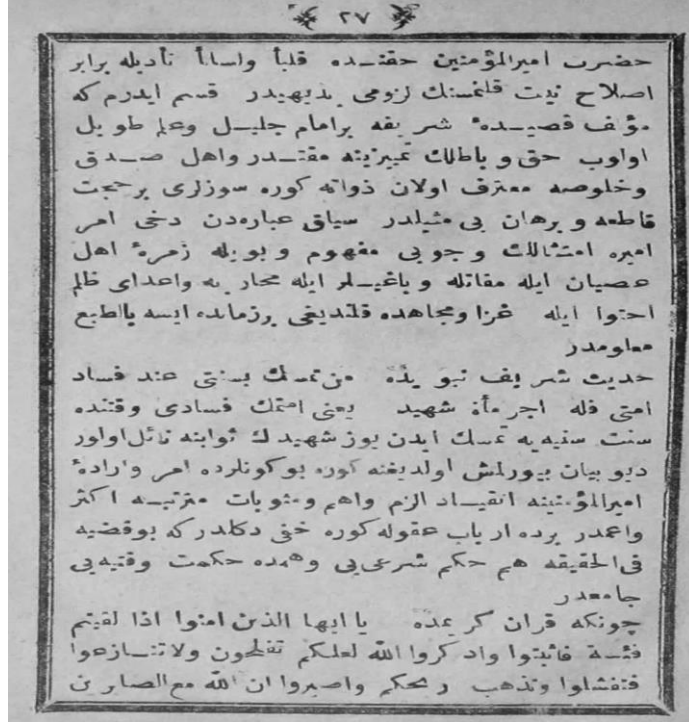 ٢٧
حضرت اميرالمؤمنين حقنده قلباً ولساناً تأديله برابر
اصلاح نيت قلنمسنك لزومى بديهيدر قسم ايدرم كه
مؤلف قصيدهٔ شريفه برامام جليل وعلم طويل
اولوب حق وباطلك تمييزينه مقتدر واهل صدق
وخلوصه معترف اولان ذواته كوره سوزلرى برحجت
قاطعه وبرهان بى مثيلدر سياق عبارەدن دخى امر
اميره امتثالك وجوبى مفهوم وبويله زمرهٔ اهل
عصيان ايله مقاتله وباغيلر ايله محاربه واعداى ظلم
احتوا ايله غزا ومجاهده قلنديغى برزمانده ايسه بالطبع
معلومدر
حديث شريف نبويده من تمسك بسنتى عند فساد
امتى فله اجر مأة شهيد يعنى امتمك فسادى وقتنده
سنت سنيه يه تمسك ايدن يوز شهيدك ثوابنه نائل اولور
ديو بيان بيورلمش اولديغنه كوره بوكونلرده امر وارادهٔ
اميرالمؤمنينه انقياد الزم واهم ومثوبات مترتبه اكثر
واعمدر برده ارباب عقوله كوره خفى دكلدركه بوقضيه
فى الحقيقه هم حكم شرعى يى وهمده حكمت وقتيه يى
جامعدر
چونكه قران كريمده يا ايها الذين امنوا اذا لقيتم
فئة فاثبتوا واذكروا الله لعلكم تفلحون ولا تنازعوا
فتفشلوا وتذهب ريحكم واصبروا ان الله مع الصابرين